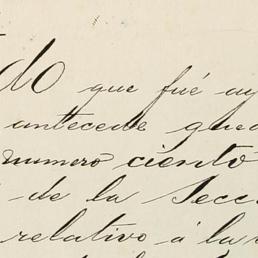 do que fué
antecede
numero ciento
de la Secc
relativo á la